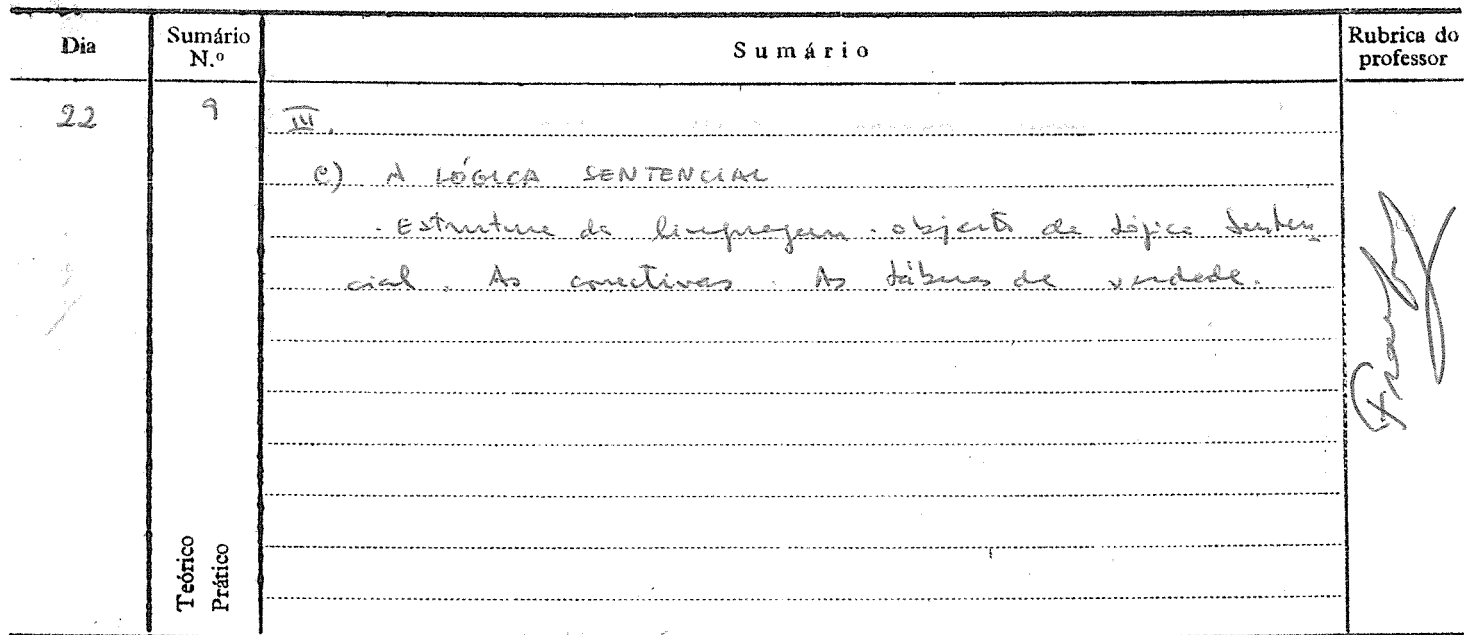 Dia
Sumário N.º
Sumário
Rubrica do professor
22
9
III.
C) A LÓGICA SENTENCIAL
- Estrutura da linguagem-objecto da Lógica Senten
cial. As conectivas. As tábuas de verdade.
Teórico
Prático